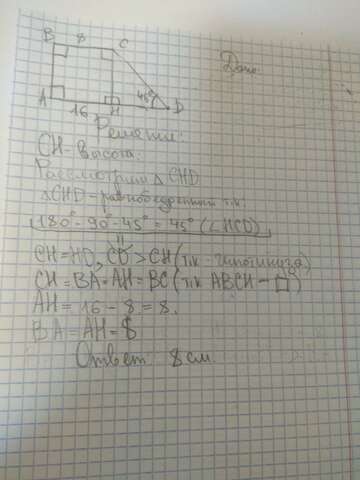 B 8 C
Дано:
45°
A H D
16
Решение:
CH - высота.
Рассмотрим △ CHD
△CHD - равнобедренный т.к.
180°- 90°-45° = 45° (∠HCD)
CH=HD, CD > CH (т.к - гипотинуза)
CH = BA = AH = BC (т.к ABCH - □)
AH = 16 - 8 = 8.
BA = AH = 8
Ответ 8 см